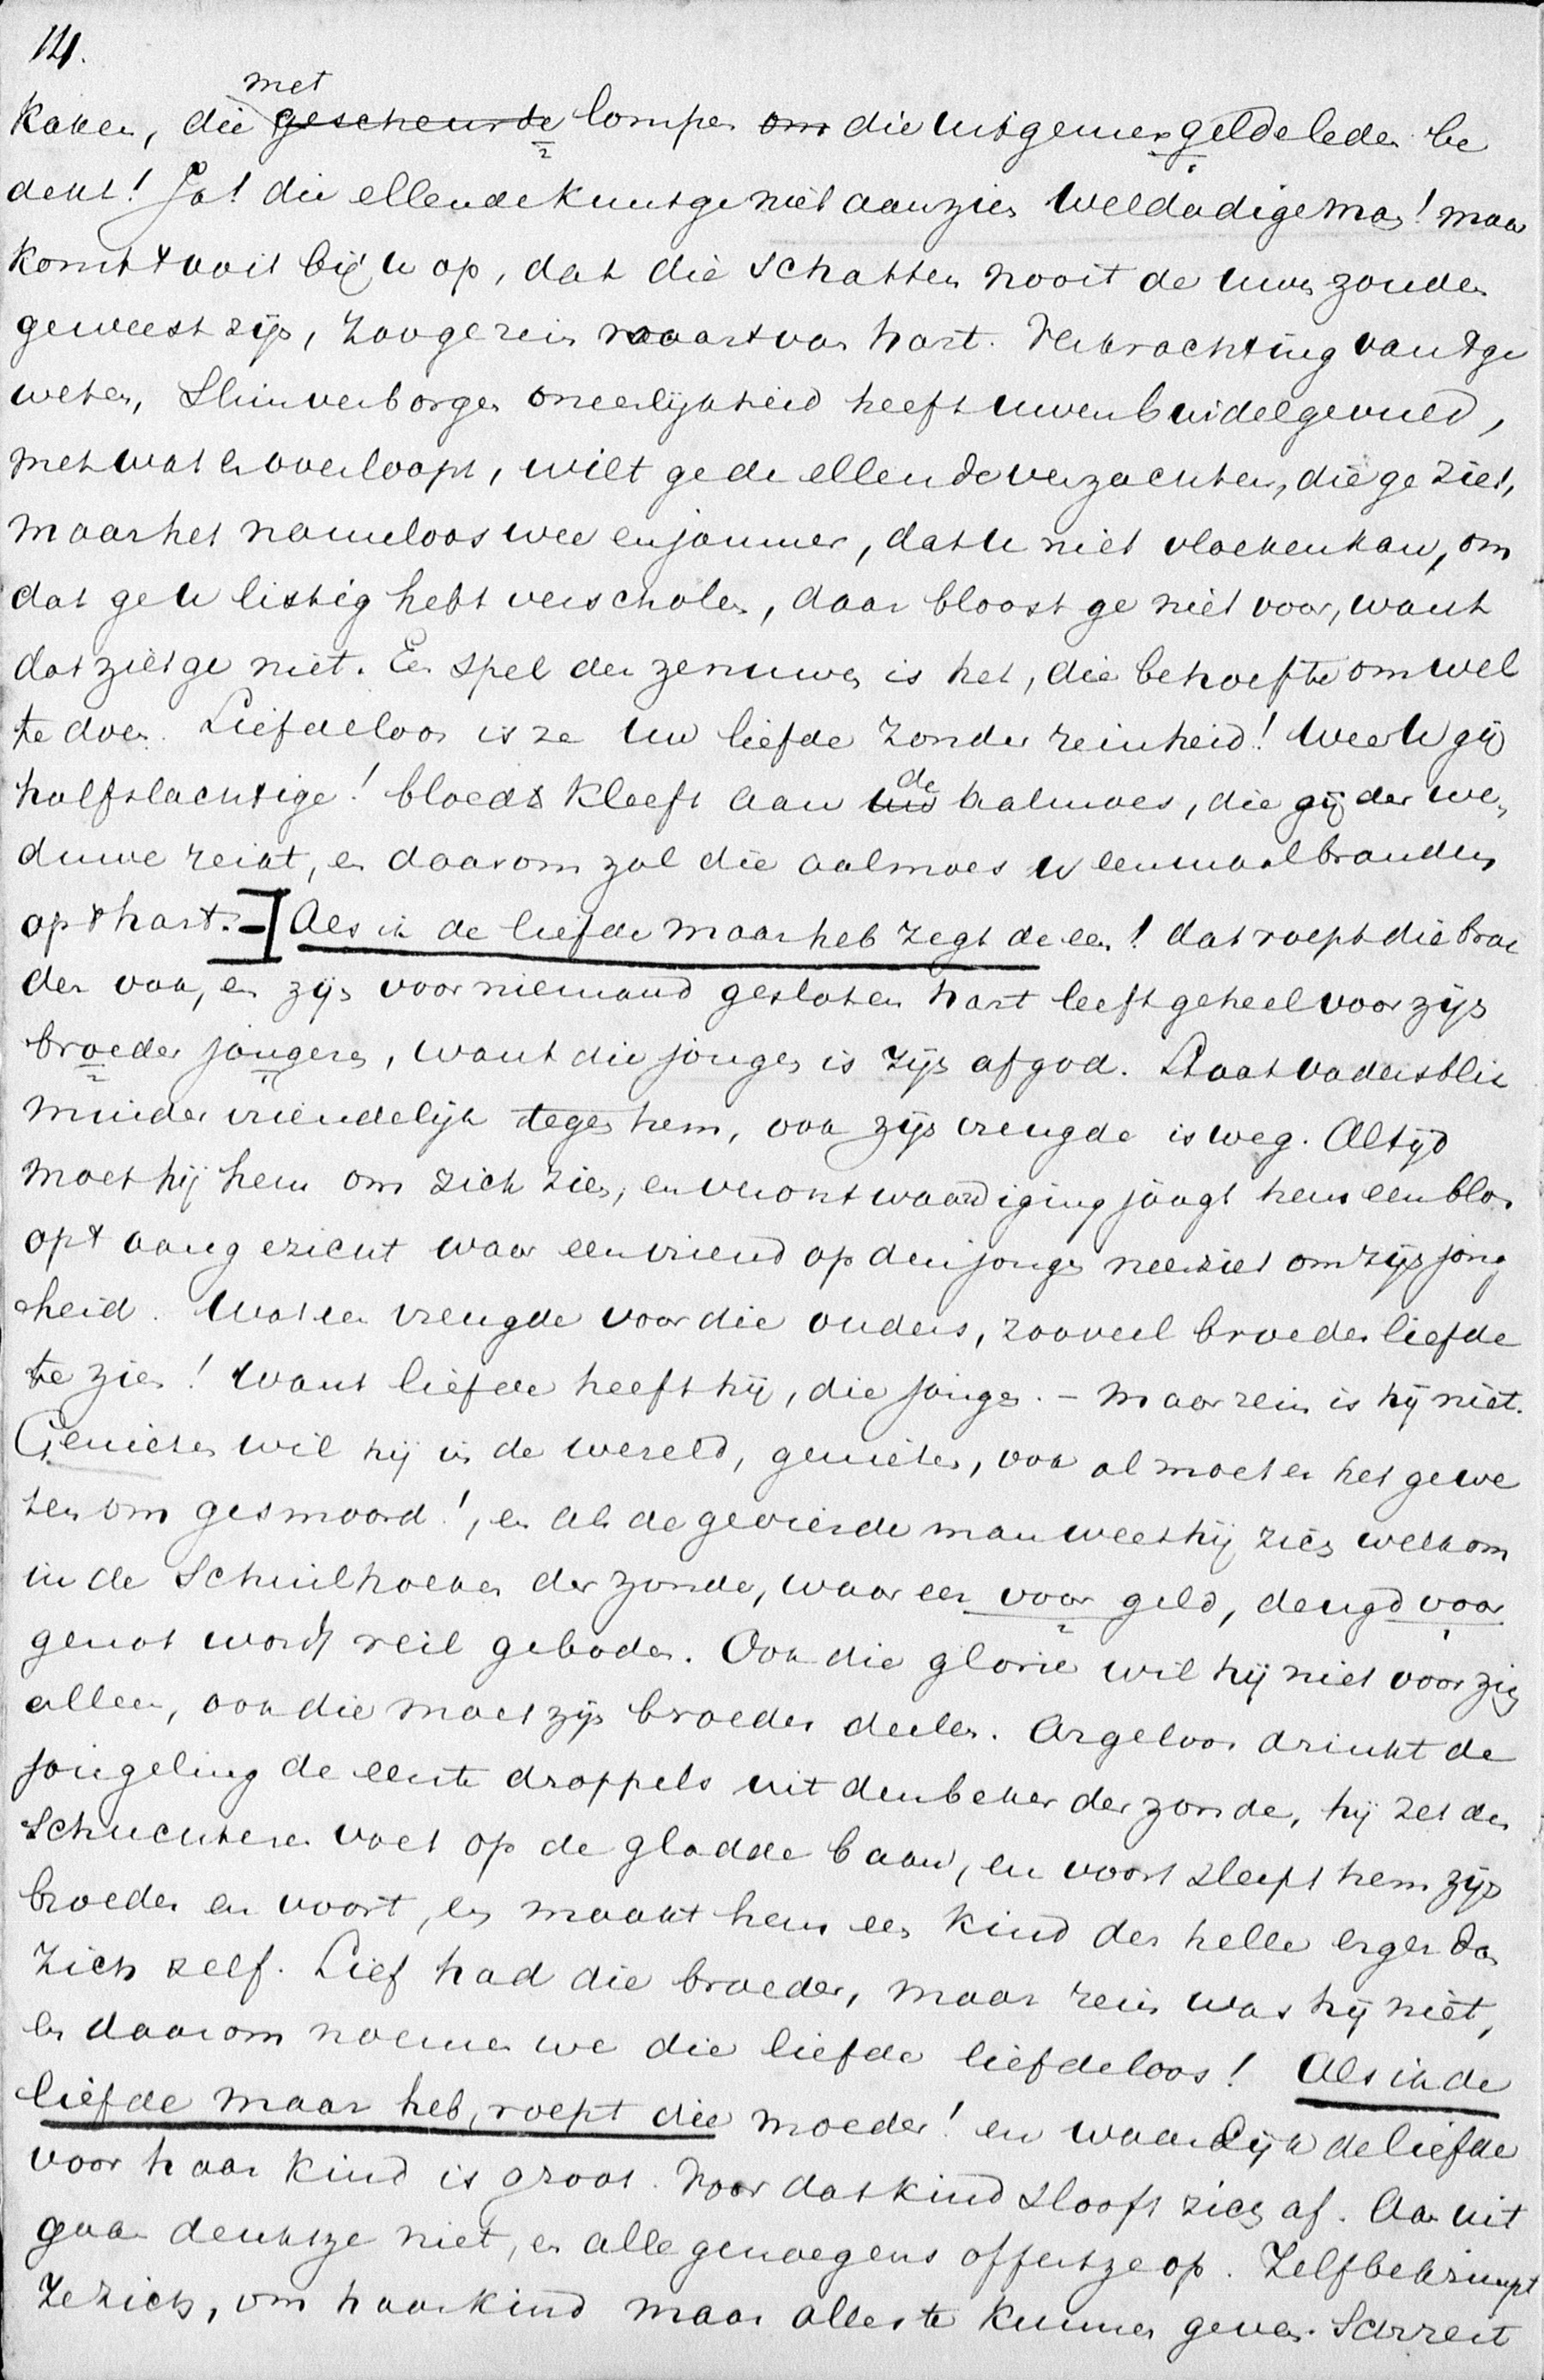 14.
met
kaken, die gescheurde lompen om die uitgemergelde leden be
dekt! Ja! die ellende kunt ge niet aanzien weldadige man! maar
komt 't ooit bij u op, dat die schatten nooit de uwe zouden
geweest zijn, zoo ge rein waart van hart. Verkrachting van 't ge
weten, slim verborgen oneerlijkheid heeft uwen buidel gevuld,
met wat er overloopt, wilt ge de ellende verzachten, die ge ziet,
maar het nameloos wee en jammer, dat u niet vloeken kan, om
dat ge u listig hebt verscholen, daar bloost ge niet voor, want
dat ziet ge niet. Een spel der zenuwen is het, die behoefte om wel
te doen. Liefdeloos is ze uw liefde zonder reinheid! Wee U gij
halfslachtige! bloed kleeft aan uw de aalmoes, die gij der we,
duwe reikt, en daarom zal die aalmoes u eenmaal branden
op 't hart. – Als ik de liefde maar heb zegt de een! dat roept die broe
der ook, en zijn voor niemand gesloten hart leeft geheel voor zijn
broeder jongere, want die jongen is zijn afgod. Staat vaders blik
minder vriendelijk tegen hem, ook zijn vreugde is weg. Altijd
moet hij hem om zich zien, en verontwaardiging jaagt hem een blos
op 't aangezicht waar een vriend op den jongen neerziet om zijn jong
heid. Wat een vreugde voor die ouders, zooveel broederliefde
te zien! Want liefde heeft hij, die jongen. – Maar rein is hij niet.
Genieten wil hij in de wereld, genieten, ook al moet er het gewe
ten om gesmoord!, en als de gevierde man weet hij zich welkom
in de schuilhoeken der zonde, waar eer voor geld, deugd voor
genot wordt veil geboden. Ook die glorie wil hij niet voor zich
alleen, ook die moet zijn broeder deelen. Argeloos drinkt de
jongeling de eerste droppels uit den beker der zonde, hij zet den
schuchteren voet op de gladde baan, en voort sleept hem zijn
broeder en voort, en maakt hem een kind der helle erger dan
zich zelf. Lief had die broeder, maar rein was hij niet,
en daarom noemen we die liefde liefdeloos! Als ik de
liefde maar heb, roept die moeder! en waarlijk de liefde
voor haar kind is groot. Voor dat kind slooft zich af. Aan uit
gaan denkt ze niet, en alle genoegens offert ze op. Zelf bekrimpt
ze zich, om haar kind maar alles te kunnen geven. Schreit